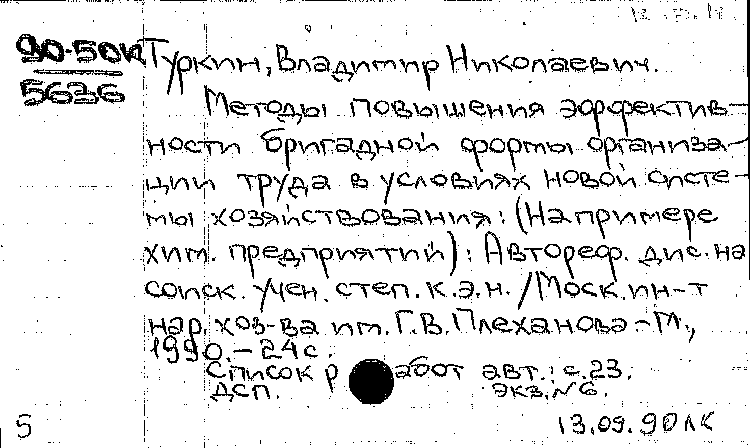 90-50К Туркин, Владимир Николаевич.
5636
Методы повышения эффектив-
ности бригадной формы организа-
ции труда в условиях новой систе-
мы хозяйствования: (На примере
хим. предприятий): Автореф. дис. на
соиск. учен. степ. к.э.н. / Моск. ин-т
нар. хоз-ва им. Г.В. Плеханова.-М.,
1990.-24с.
Список работ авт.: с.23.
ДСП. экз. №6.
5 13.09.90ЛК